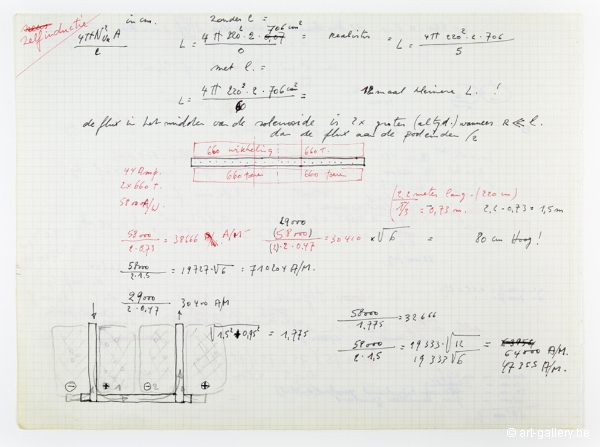 zelfinductie
in cm.
4πN² A / l
zonder l =
L = 4π 220² · 2 · 706 cm² / 0 = realistis = L = 4π 220² · 2 · 706 / 5
met l. =
L = 4π 220² · 2 · 706 cm² / 60
12 maal kleinere L. !
de flux in het midden van de solenoide is 2x groter (altijd.) wanneer R ≪ l.
dan de flux aan de poleinden /2
660 wikkeling : 660 t.
660 toere 660 toere
44 Amp.
2 x 660 t.
58000 A/W
(2.2 meter lang. (220 cm)
/3 = 0,73 m. 2,2 - 0,73 = 1,5 m
58000 / 2 · 0,73 = 38666 A/M
29000
(58000) / (2) · 2 · 0,47 = 30400 x √6 = 80 cm Hoog !
58000 / 2 · 1,5 = 19727 · √6 = 710204 A/M.
29000 / 2 · 0,47 30400 A/M
√1,5² + 0,95² = 1,775
58000 / 1,775 = 32666
58000 / 2 · 1,5 = 19333 · √12 =
19333 √6
64000 A/M.
47355 A/M.
⊖ + 1 ⊖ 2 ⊕
© art-gallery.be